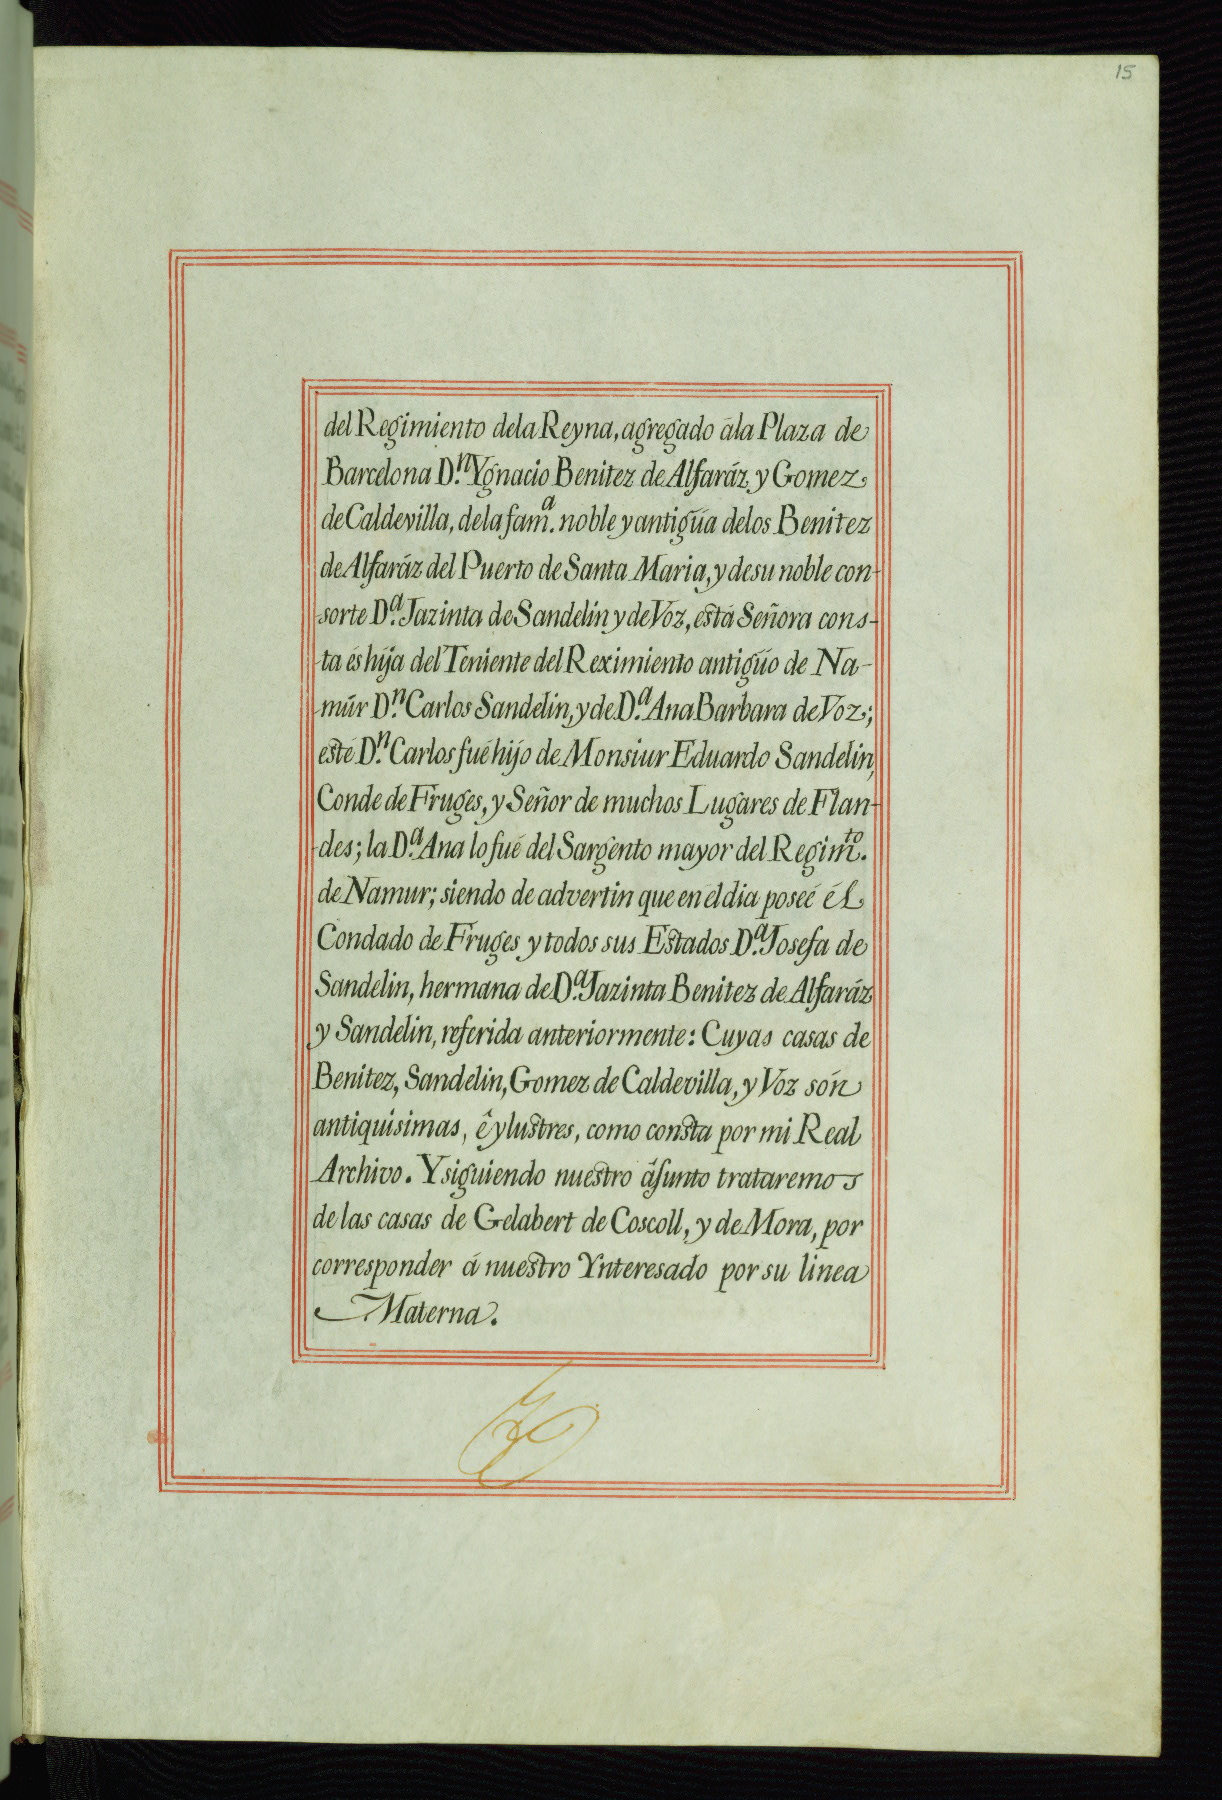 15
del Regimiento dela Reyna, agregado ála Plaza de
Barcelona D.ⁿ Ygnacio Benitez de Alfaráz y Gomez
de Caldevilla, dela fam.ᵃ noble y antigüa delos Benitez
de Alfaráz del Puerto de Santa Maria, y desu noble con-
sorte D.ᵃ Jazinta de Sandelin y de Voz, está Señora cons-
ta és hija del Teniente del Reximiento antigüo de Na-
múr D.ⁿ Carlos Sandelin, y de D.ᵃ Ana Barbara de Voz;
esté D.ⁿ Carlos fué hijo de Monsiur Eduardo Sandelin,
Conde de Fruges, y Señor de muchos Lugares de Flan-
des; la D.ᵃ Ana lo fué del Sargento mayor del Regim.ᵗᵒ
de Namur; siendo de advertin que en él dia poseé él
Condado de Fruges y todos sus Estados D.ᵃ Josefa de
Sandelin, hermana de D.ᵃ Jazinta Benitez de Alfaráz
y Sandelin, referida anteriormente: Cuyas casas de
Benitez, Sandelin, Gomez de Caldevilla, y Voz són
antiquisimas, ê ylustres, como consta por mi Real
Archivo. Y siguiendo nuestro ásunto trataremos
de las casas de Gelabert de Coscoll, y de Mora, por
corresponder á nuestro Ynteresado por su linea
Materna.